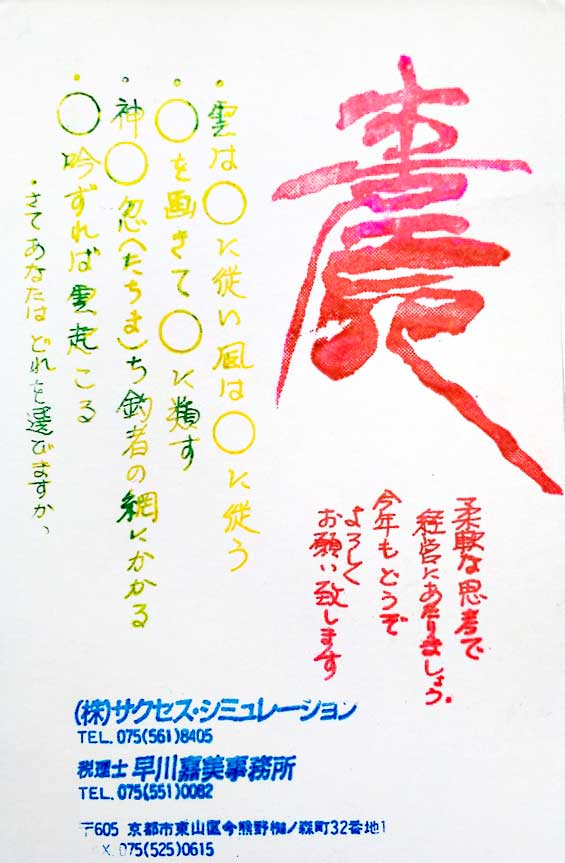 柔軟な思考で
経営にあたりましょう。
今年もどうぞ
よろしく
お願い致します
・雲は○に従い風は○に従う
・○を画きて○に類す
・神○忽(たちま)ち釣者の網にかかる
・○吟ずれば雲起こる
・さてあなたはどれを選びますか、
(株)サクセス・シミュレーション
TEL. 075(561)8405
税理士 早川嘉美事務所
TEL. 075(551)0082
〒605 京都市東山区今熊野椥ノ森町32番地1
X. 075(525)0615